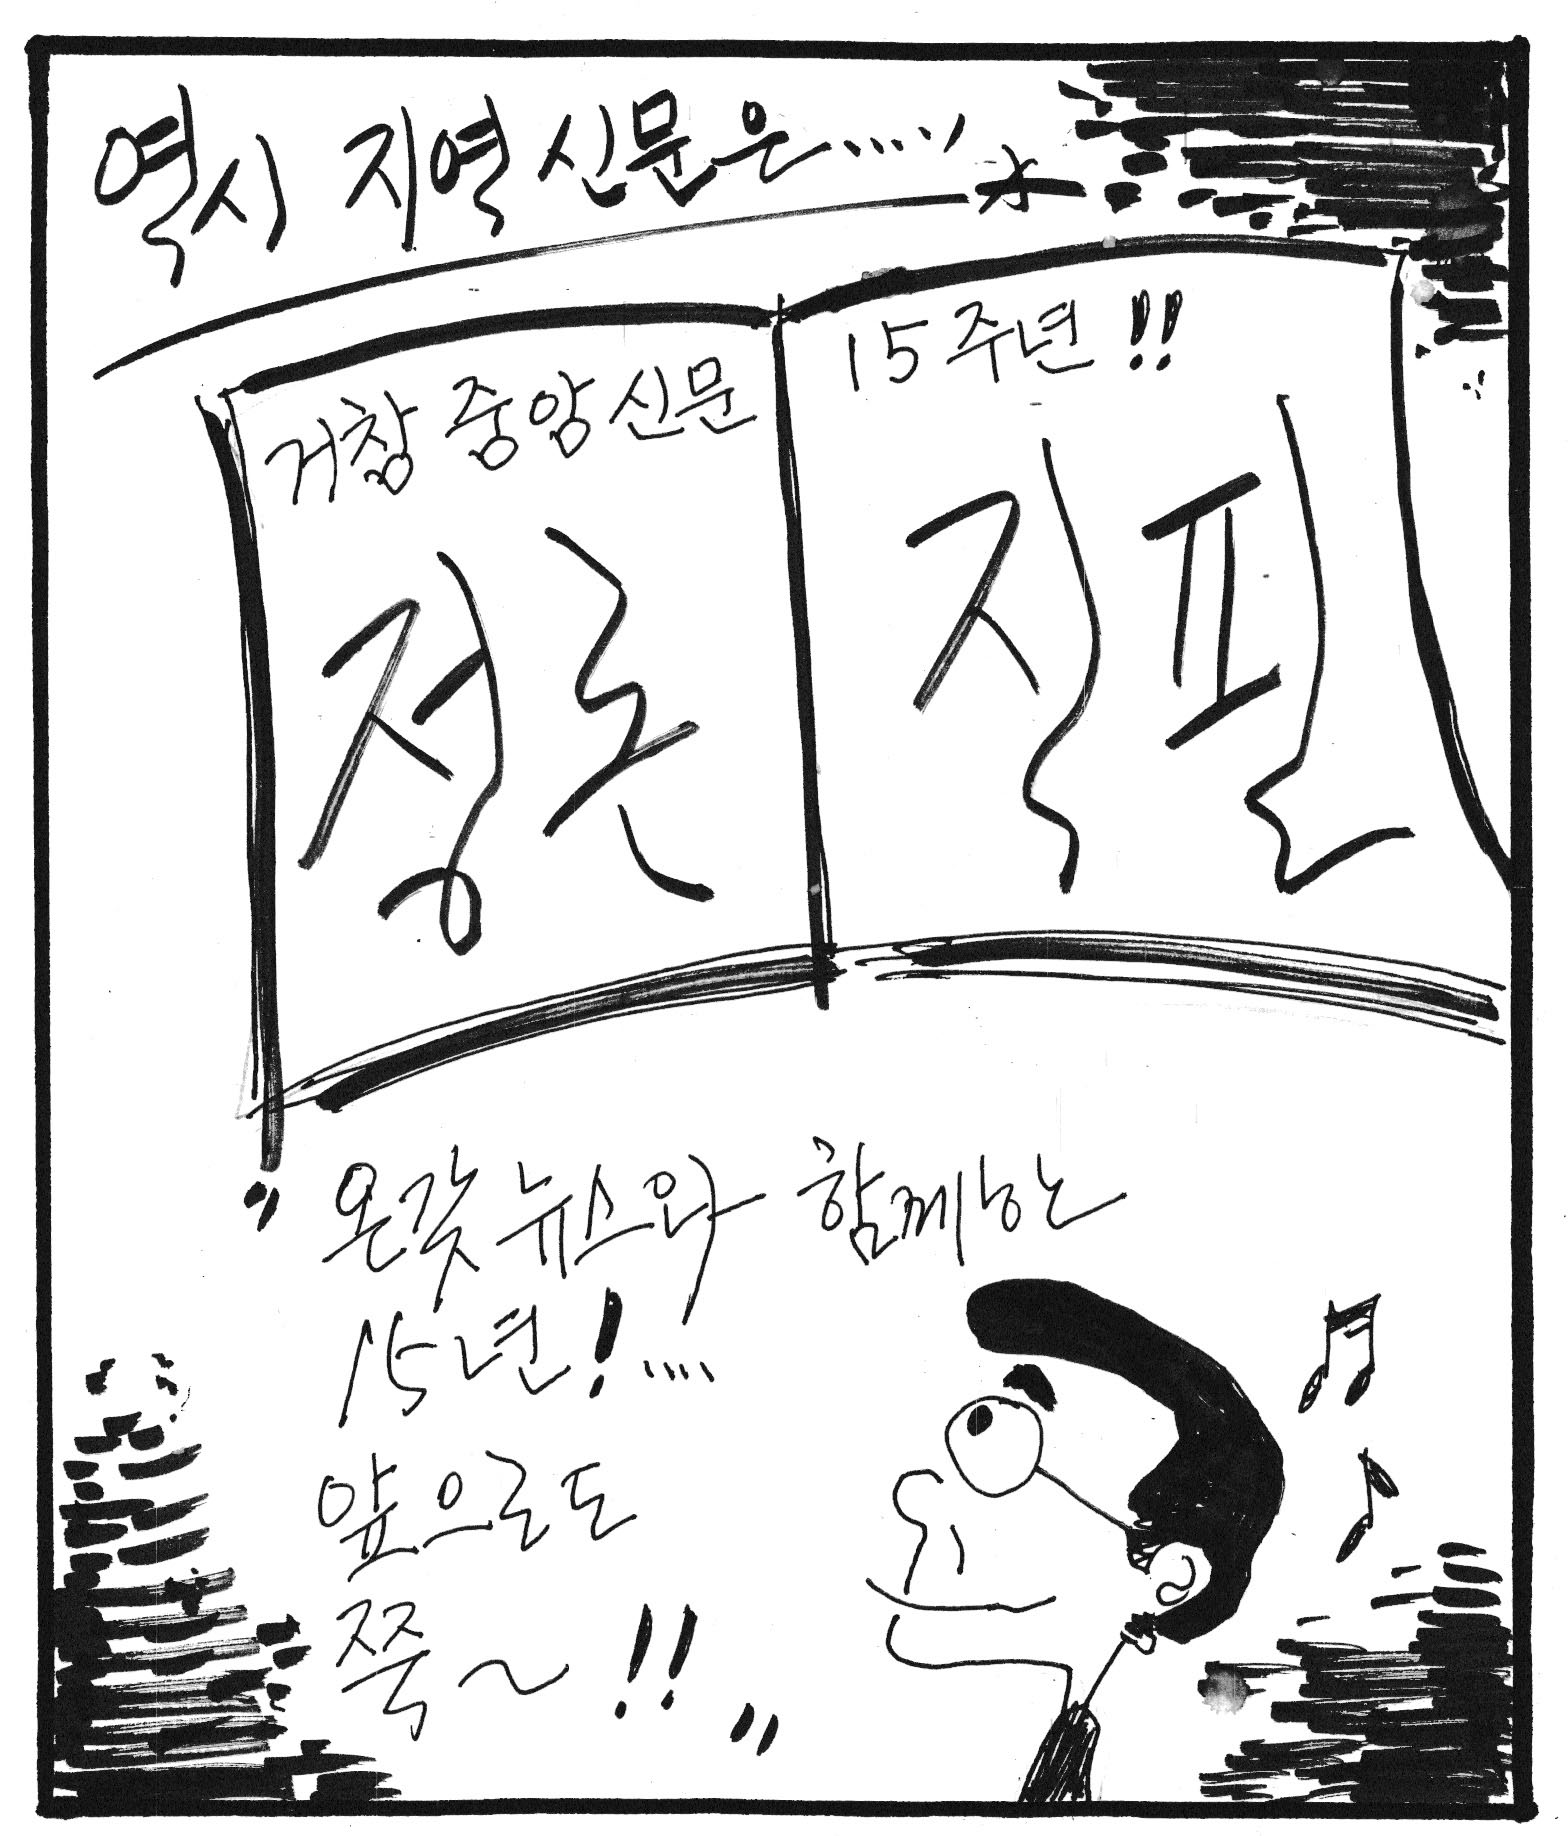 역시 지역신문은.....
거창중앙신문
정론
15주년!!
직필
"온갖 뉴스와 함께한
15년!....
앞으로도
쭉~!!"